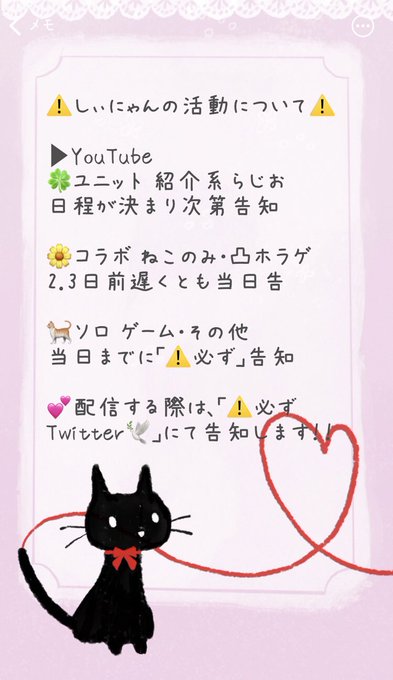 メモ
⚠️しぃにゃんの活動について⚠️
▶YouTube
🍀ユニット 紹介系らじお
日程が決まり次第告知
🌼コラボ ねこのみ･凸ホラゲ
2.3日前遅くとも当日告
🐈ソロ ゲーム･その他
当日までに「⚠️必ず」告知
💕配信する際は、「⚠️必ず
Twitter🕊」にて告知します!!